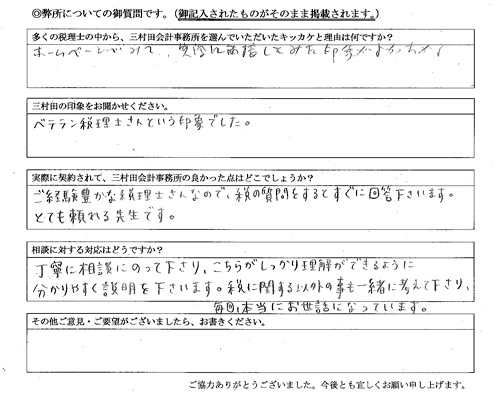 ◎弊所についての御質問です。（御記入されたものがそのまま掲載されます。）
多くの税理士の中から、三村田会計事務所を選んでいただいたキッカケと理由は何ですか？
ホームページでみて、実際に面談してみた印象がよかった
三村田の印象をお聞かせください。
ベテラン税理士さんという印象でした。
実際に契約されて、三村田会計事務所の良かった点はどこでしょうか？
ご経験豊かな税理士さんなので、税の質問をするとすぐに回答下さいます。
とても頼れる先生です。
相談に対する対応はどうですか？
丁寧に相談にのって下さり、こちらがしっかり理解ができるように
分かりやすく説明を下さいます。税に関する以外の事も一緒に考えて下さり、
毎回、本当にお世話になっています。
その他ご意見・ご要望がございましたら、お書きください。
ご協力ありがとうございました。今後とも宜しくお願い申し上げます。